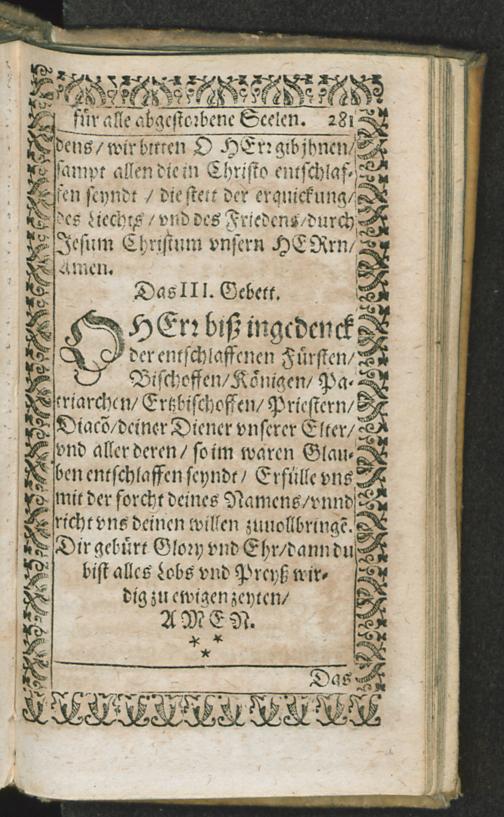 für alle abgestorbene Seelen. 281
dens / wir bitten O HErr gib jhnen /
sampt allen die in Christo entschlaf-
fen seyndt / die stett der erquickung /
des Liechts / vnd des Friedens / durch
Jesum Christum vnsern HERrn /
Amen.
Das III. Gebett.
O HErr biß ingedenck
der entschlaffenen Fürsten /
Bischoffen / Königen / Pa-
triarchen / Ertzbischoffen / Priestern /
Diacō / deiner Diener vnserer Elter /
vnd aller deren / so im waren Glau-
ben entschlaffen seyndt / Erfülle vns
mit der forcht deines Namens / vnnd
richt vns deinen willen zuuollbringē.
Dir gebürt Glory vnd Ehr / dann du
bist alles Lobs vnd Preyß wir-
dig zu ewigen zeyten /
AMEN.
* * *
Das